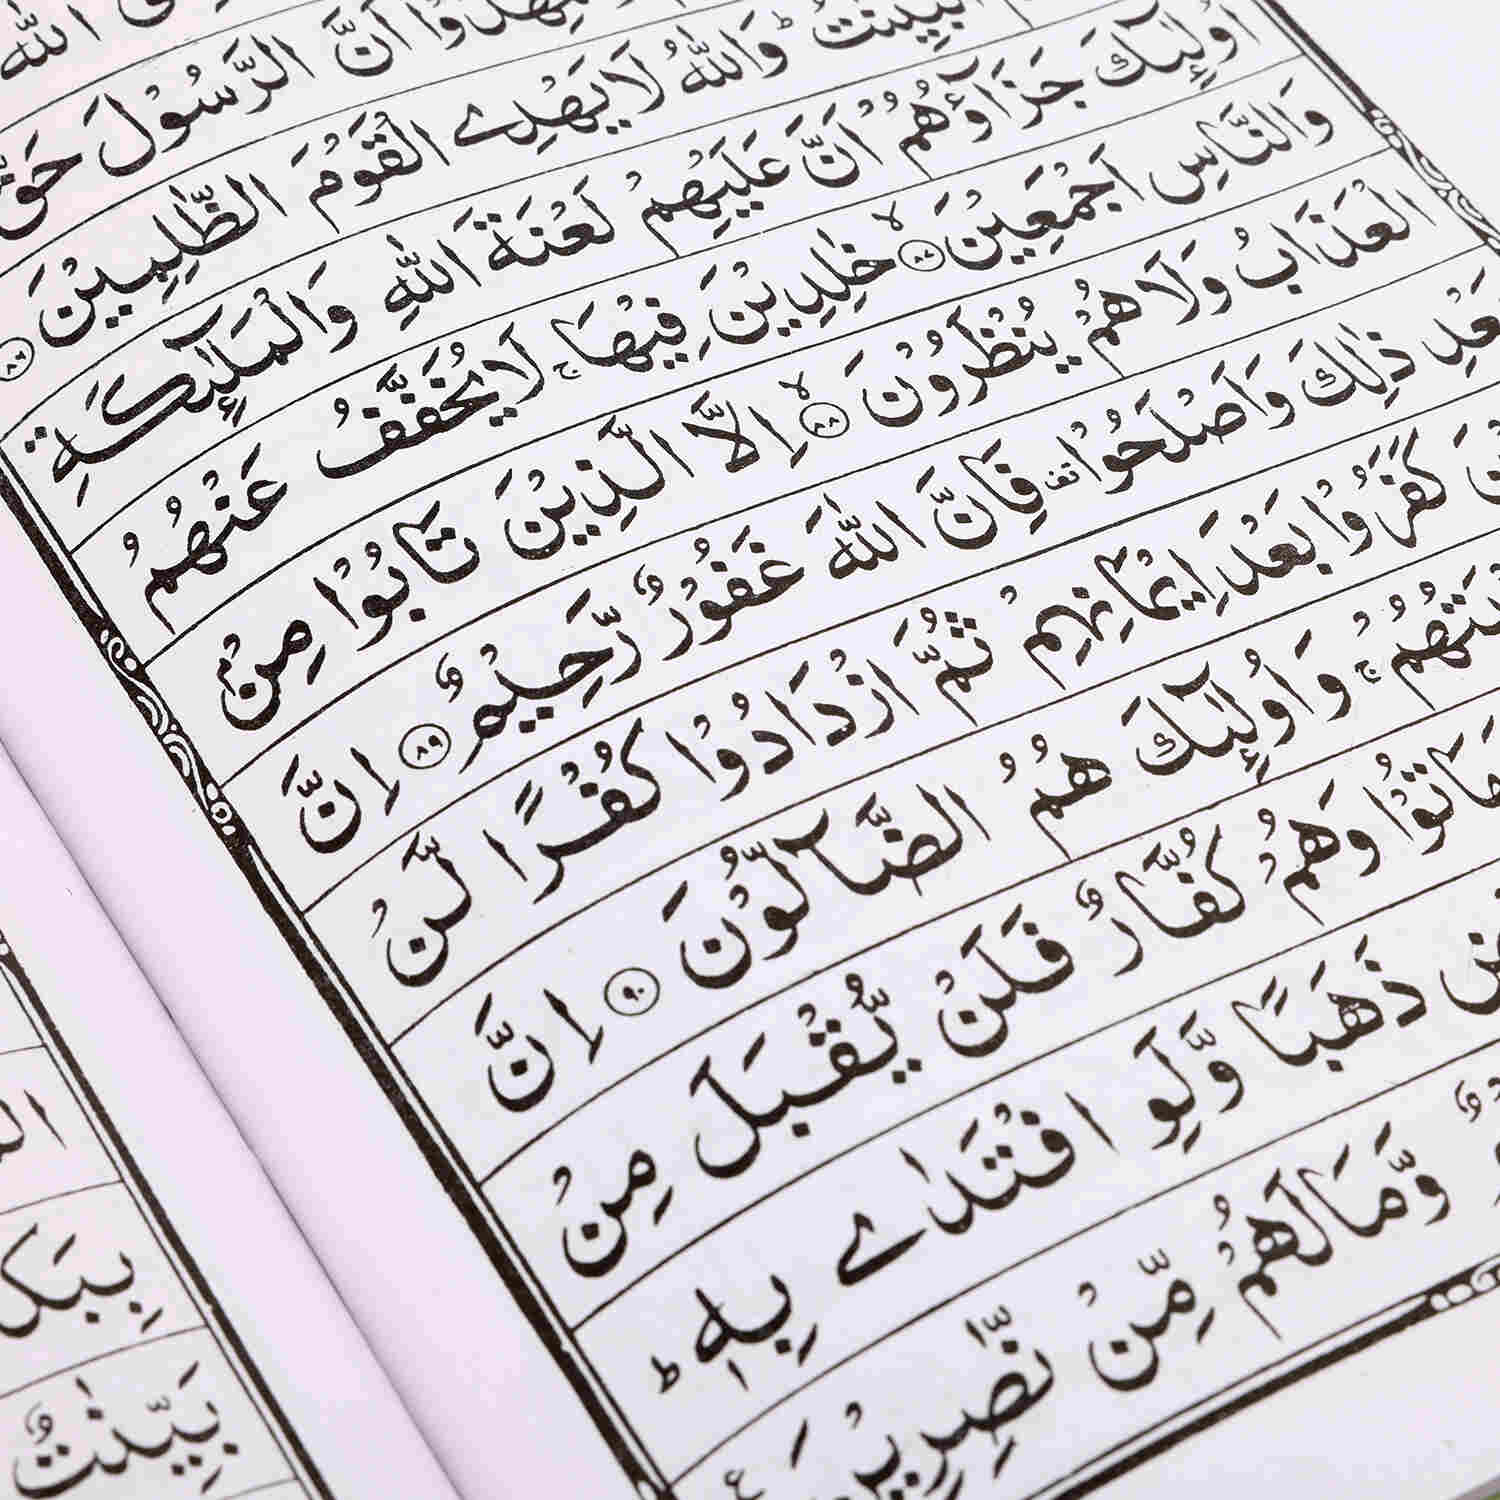 أَنَّ الرَّسُوْلَ حَقٌّ
الْبَيِّنٰتُ ؕ وَاللّٰهُ لَا يَهْدِى الْقَوْمَ الظّٰلِمِيْنَ ﴿۸۶﴾
اُولٰٓئِكَ جَزَآؤُهُمْ اَنَّ عَلَيْهِمْ لَعْنَةَ اللّٰهِ وَالْمَلٰٓئِكَةِ
وَالنَّاسِ اَجْمَعِيْنَ ﴿۸۷﴾ۙ خٰلِدِيْنَ فِيْهَا ۚ لَا يُخَفَّفُ عَنْهُمُ
الْعَذَابُ وَلَا هُمْ يُنْظَرُوْنَ ﴿۸۸﴾ۙ اِلَّا الَّذِيْنَ تَابُوْا مِنْۢ
بَعْدِ ذٰلِكَ وَاَصْلَحُوْا تف فَاِنَّ اللّٰهَ غَفُوْرٌ رَّحِيْمٌ ﴿۸۹﴾ اِنَّ
كَفَرُوْا بَعْدَ اِيْمَانِهِمْ ثُمَّ ازْدَادُوْا كُفْرًا لَّنْ
تَوْبَتُهُمْ ۚ وَاُولٰٓئِكَ هُمُ الضَّآلُّوْنَ ﴿۹۰﴾ اِنَّ
مَاتُوْا وَهُمْ كُفَّارٌ فَلَنْ يُّقْبَلَ مِنْ
ذَهَبًا وَّلَوِ افْتَدٰى بِهٖ ؕ
وَّمَا لَهُمْ مِّنْ نّٰصِرِيْنَ
بَيِّنٰتٌ